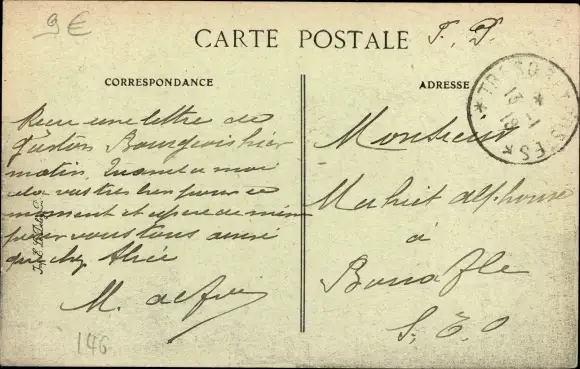 9 €
CARTE POSTALE F. P.
CORRESPONDANCE
Reçu une lettre de
Gaston Bourgeois hier
matin. Quand a moi
cela va tres bien pour ce
moment et espere de même
pour vous tous ainsi
que chez
M.
146
ADRESSE
TRESOR ET POSTES
13 1
Monsieur
Mahiet alphonse
à
Bonafle
S. E. O